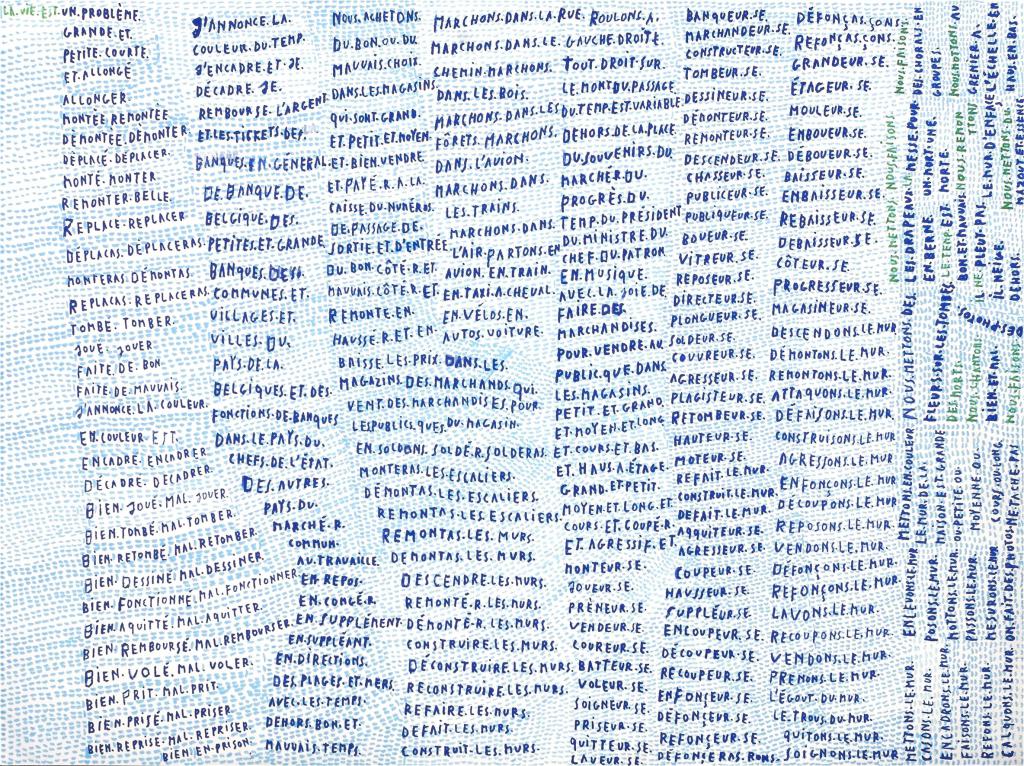 LA.VIE.EST.UN.PROBLÈME.
GRANDE.ET.
PETITE.COURTE.
ET.ALLONGÉ
ALLONGER.
MONTÉE.REMONTÉE
DÉMONTÉE.DÉMONTER.
DÉPLACÉ.DÉPLACER.
MONTÉ.MONTER
REMONTER.BELLE.
REPLACE.REPLACER
DÉPLACAS.DÉPLACERAS.
MONTERAS.DÉMONTAS.
REPLACAS.REPLACERAS.
TOMBE.TOMBER.
JOUE.JOUER
FAITE.DE.BON.
FAITE.DE.MAUVAIS.
J'ANNONCE.LA.COULEUR.
EN.COULEUR EST.
ENCADRE.ENCADRER
DÉCADRE.DÉCADRER.
BIEN.JOUÉ.MAL.JOUER.
BIEN.TOMBÉ.MAL.TOMBER.
BIEN.RETOMBÉ.MAL.RETOMBER.
BIEN.DESSINÉ.MAL.DESSINER.
BIEN.FONCTIONNÉ.MAL.FONCTIONNER
BIEN.AQUITTÉ.MAL.AQUITTER.
BIEN.REMBOURSÉ.MAL.REMBOURSER
BIEN.VOLÉ.MAL.VOLER.
BIEN.PRIT.MAL.PRIT.
BIEN.PRISÉ.MAL.PRISER
BIEN.REPRISE.MAL.REPRISER.
BIEN.EN.PRISON.
J'ANNONCE.LA.
COULEUR.DU.TEMP.
J'ENCADRE.ET.JE.
DÉCADRE.JE.
REMBOURSE.L'ARGENT
ET.LES.TICKETS.DEP.
BANQUES.EN.GÉNÉRAL.
DE.BANQUE.DE.
BELGIQUE.DES.
PETITES.ET.GRANDE
BANQUES.DES.
COMMUNES.ET.
VILLAGES.ET.
VILLES.DU.
PAYS.DE.LA.
BELGIQUES.ET.DES.
FONCTIONS.DE.BANQUES
DANS.LE.PAYS.DU.
CHEFS.DE.L'ÉTAT.
DES.AUTRES.
PAYS.DU.
MARCHÉ.R.
COMMUN.
AU.TRAVAILLE.
EN.REPOS.
EN.CONGÉ.R.
EN.SUPPLÉMENT
EN.SUPPLÉANT.
EN.DIRECTIONS.
DES.PLAGES.ET.MERS.
AVEC.LES.TEMPS.
DEHORS.BON.ET.
MAUVAIS.TEMPS.
NOUS.ACHETONS.
DU.BON.OU.DU
MAUVAIS.CHOIX.
DANS.LES.MAGASINS
QUI.SONT.GRAND.
ET.PETIT.ET.MOYEN.
ET.BIEN.VENDRE.
ET.PAYÉ.R.A.LA.
CAISSE.DU.NUMÉROS.
DE.PASSAGE.DE.
SORTIE.ET.D'ENTRÉE
DU.BON.CÔTÉ.R.ET.
MAUVAIS.CÔTÉ.R.ET
REMONTE.EN.
HAUSSÉ.R.ET.EN.
BAISSE.LES.PRIS.DANS.LES.
MAGAZINS.DES.MARCHANDS.QUI.
VENT.DES.MARCHANDISES.POUR.
LES.PUBLICS.QUES.DU.MAGASIN.
EN.SOLDONS.SOLDÉ.R.SOLDERAS.
MONTERAS.LES.ESCALIERS.
DÉMONTAS.LES.ESCALIERS.
REMONTAS.LES.ESCALIERS.
REMONTAS.LES.MURS.
DEMONTAS.LES.MURS.
DESCENDRE.LES.MURS.
REMONTÉ.R.LES.MURS.
DÉMONTÉ.R.LES.MURS.
CONSTRUIRE.LES.MURS.
DÉCONSTRUIRE.LES.MURS.
RECONSTRUIRE.LES.MURS.
REFAIRE.LES.MURS.
DEFAIT.LES.MURS.
CONSTRUIT.LES.MURS.
MARCHONS.DANS.LA.RUE.
MARCHONS.DANS.LE.
CHEMIN.MARCHONS.
DANS.LES.BOIS.
MARCHONS.DANS.LES
FÔRETS.MARCHONS.
DANS.L'AVION.
MARCHONS.DANS.
LES.TRAINS.
MARCHONS.DANS.
L'AIR.PARTONS.EN
AVION.EN.TRAIN.
EN.TAXI.A.CHEVAL.
EN.VÉLOS.EN.
AUTOS.VOITURE.
ROULONS.A.
GAUCHE.DROITE.
TOUT.DROIT.SUR.
LE.MONT.DU.PASSAGE
DU.TEMP.EST.VARIABLE.
DEHORS.DE.LA.PLACE.
DU.SOUVENIRS.DU
MARCHÉR.DU.
PROGRÈS.DU.
TEMP.DU.PRÉSIDENT
DU.MINISTRE.DU.
CHEF.DU.PATRON
EN.MUSIQUE.
AVEC.LA.JOIE.DE
FAIRE.DES.
MARCHANDISES.
POUR.VENDRE.AU
PUBLIC.QUE.DANS
LES.MAGASINS.
PETIT.ET.GRAND.
ET.MOYEN.ET.LONG
ET.COURS.ET.BAS.
ET.HAUS.A.ÉTAGE.
GRAND.ET.PETIT.
MOYEN.ET.LONG.ET
COURS.ET.COUPÉ.R.
ET.AGRESSIF.ET
MONTEUR.SE.
JOUEUR.SE.
PRÊNEUR.SE.
VENDEUR.SE.
COUREUR.SE.
BATTEUR.SE.
VOLEUR.SE.
SOIGNEUR.SE.
PRISEUR.SE.
QUITTEUR.SE.
LAVEUR.SE.
BANQUEUR.SE.
MARCHANDEUR.SE.
CONSTRUCTEUR.SE.
TOMBEUR.SE.
DESSINEUR.SE.
DÉMONTEUR.SE.
REMONTEUR.SE.
DESCENDEUR.SE.
CHASSEUR.SE.
PUBLICEUR.SE.
PUBLIQUEUR.SE.
BOUEUR.SE.
VITREUR.SE.
REPOSEUR.SE.
DIRECTEUR.SE.
PLONGUEUR.SE.
SOLDEUR.SE.
COUVREUR.SE.
AGRESSEUR.SE.
PLAGISTEUR.SE.
RETOMBEUR.SE.
HAUTEUR.SE.
MOTEUR.SE.
REFAIT.LE.MUR.
CONSTRUIT.LE.MUR.
DEFAIT.LE.MUR.
AQQUITEUR.SE.
AGRESSEUR.SE.
COUPEUR.SE.
HAUSSEUR.SE.
SUPPLÉUR.SE.
ENCOUPEUR.SE.
DÉCOUPEUR.SE.
RECOUPEUR.SE.
ENFONÇEUR.SE.
DÉFONÇEUR.SE.
REFONÇEUR.SE.
DÉFONÇERAS.RONS.
DÉFONÇAS.ÇONS.
REFONÇAS.ÇONS.
GRANDEUR.SE.
ÉTAGEUR.SE.
MOULEUR.SE.
EMBOUEUR.SE.
DÉBOUEUR.SE.
BAISSEUR.SE.
EMBAISSEUR.SE.
REBAISSEUR.SE.
DEBAISSEUR.SE.
CÔTEUR.SE.
PROGRESSEUR.SE.
MAGASINEUR.SE.
DESCENDONS.LE.MUR.
DÉMONTONS.LE.MUR.
REMONTONS.LE.MUR.
ATTAQUONS.LE.MUR.
DÉFAISONS.LE.MUR.
CONSTRUISONS.LE.MUR.
AGRESSONS.LE.MUR.
ENFONÇONS.LE.MUR.
DÉCOUPONS.LE.MUR.
REPOSONS.LE.MUR.
VENDONS.LE.MUR.
DÉFONÇONS.LE.MUR.
REFONÇONS.LE.MUR.
LAVONS.LE.MUR.
RECOUPONS.LE.MUR.
VENDONS.LE.MUR.
PRENONS.LE.MUR.
L'ÉGOUT.DU.MUR.
LE.TROUS.DU.MUR.
QUITONS.LE.MUR.
SOIGNONS.LE.MUR.
METTONS.LE.MUR.
CASONS.LE.MUR.
ENCADRONS.LE.MUR.
FAISONS.LE.MUR.
REFONS.LE.MUR.
CALQUONS.LE.MUR.
POSONS.LE.MUR.
MOTTONS.LE.MUR.
PASSONS.LE.MUR.
MESURONS.LE.MUR
ON.FAIT.DES.PHOTOS.NE.TACHE.PAS
METTONS.EN.COULEUR
LE.MUR.DE.LA.
MAISON.EST.GRANDE
OU.PETITE.OU.
MOYENNE.OU.
COURS.OU.LONG.
NOUS.METTONS.DES.
FLEURS.SUR.LES.TOMBES
DES.MORTS.
NOUS.CHANTONS.
BIEN.ET.MAL.
NOUS.FAISONS.
DES.PHOTOS.
NOUS.METTONS.NOUS.FAISONS.
LES.DRAPEAUX.
EN.BERNE.
LE.TEMP.EST.MORTE.
BON.ET.MAUVAIE.
IL.NE.PLEUT.PAS.
IL.NEIGE.
DEHORS.
NOUS.FAISONS.
MESSE.POUR.
UN.MORT.UNE.
DES.CHORALS.EN
GROUPES.
NOUS.MOTTONS.AU
GRENIER.A.
LE.MUR.D'EN.FACE.
L'ÉCHELLE.EN
NOUS.METTONS.DU.
HAUS.EN.BAS.